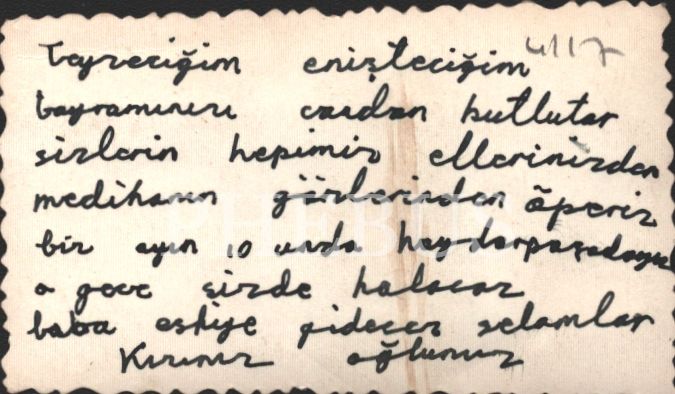 Teyzeciğim enişteciğim
4117
bayramınızı candan kutlular
sizlerin hepimiz ellerinizden
medihanın gözlerinden öperiz
bir ayın 10 unda haydarpaşadayız
o gece sizde kalacaz
baba eskiye gidecez selamlar
Kızınız oğlunuz
PHEBUS